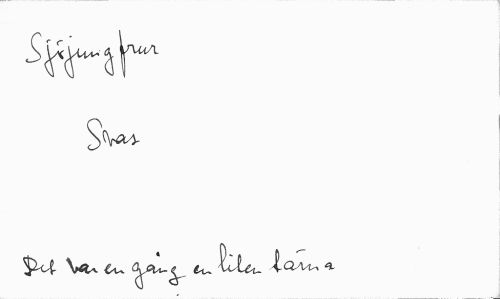 Sjöjungfrur
Svas
Det var en gång en liten tärna